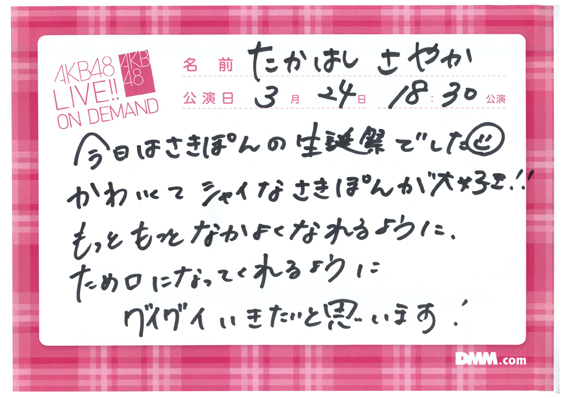 AKB48
LIVE!!
ON DEMAND
AKB
48
名前 たかはし さやか
公演日 3月 24日 18:30 公演
今日はさきぽんの生誕祭でした
かわいくてシャイなさきぽんが大好き!!
もっともっとなかよくなれるように、
ため口になってくれるように
グイグイいきたいと思います!
DMM.com